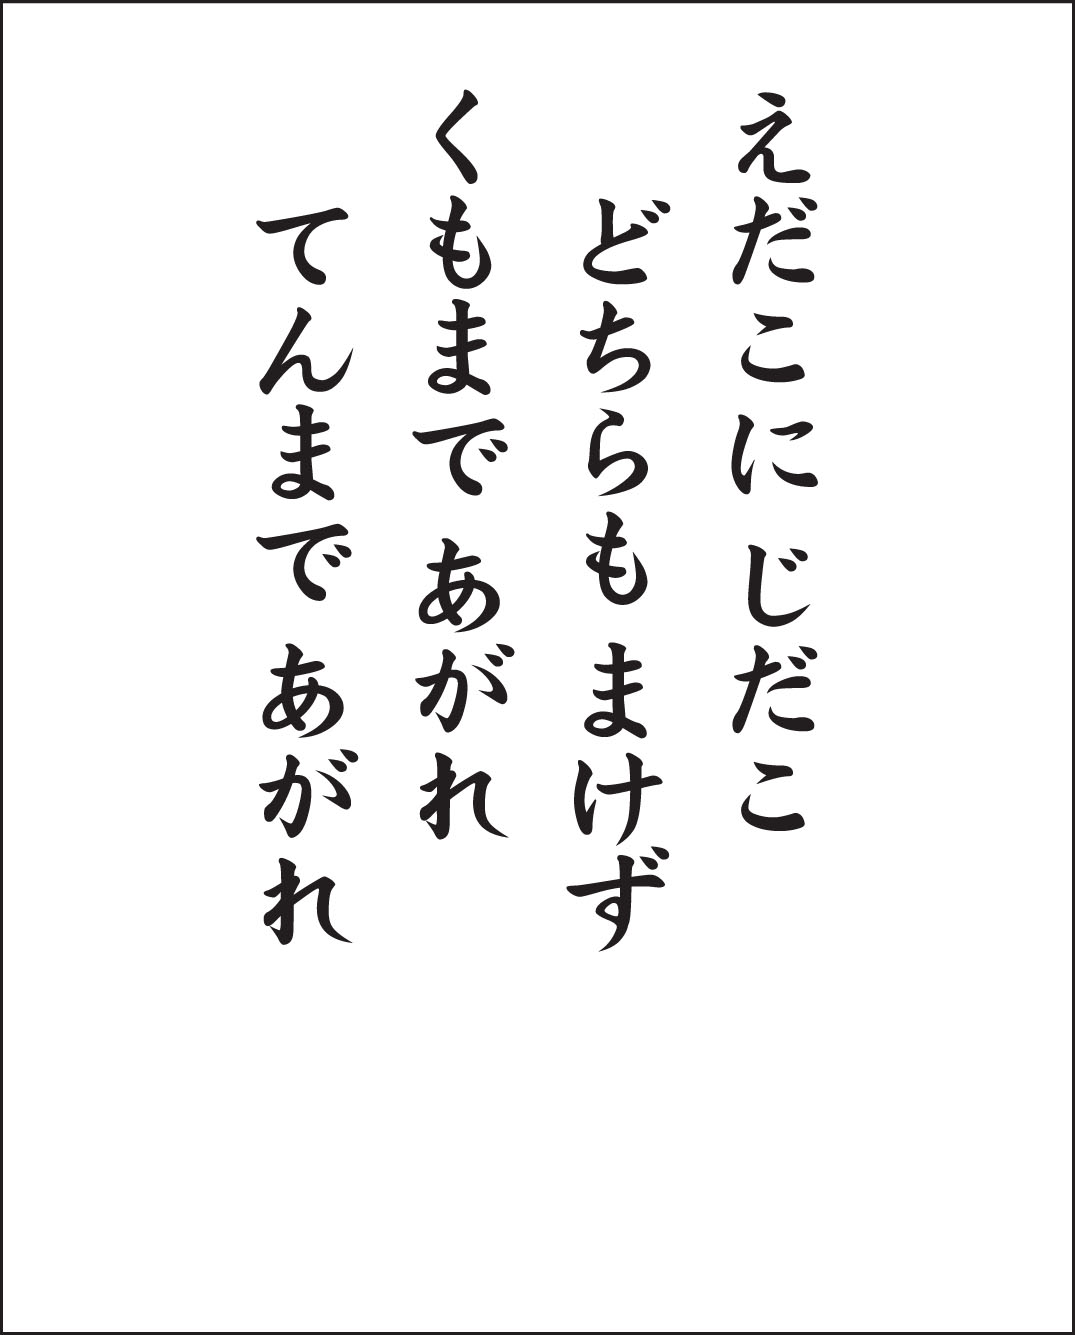 えだこに じだこ
どちらも まけず
くもまで あがれ
てんまで あがれ